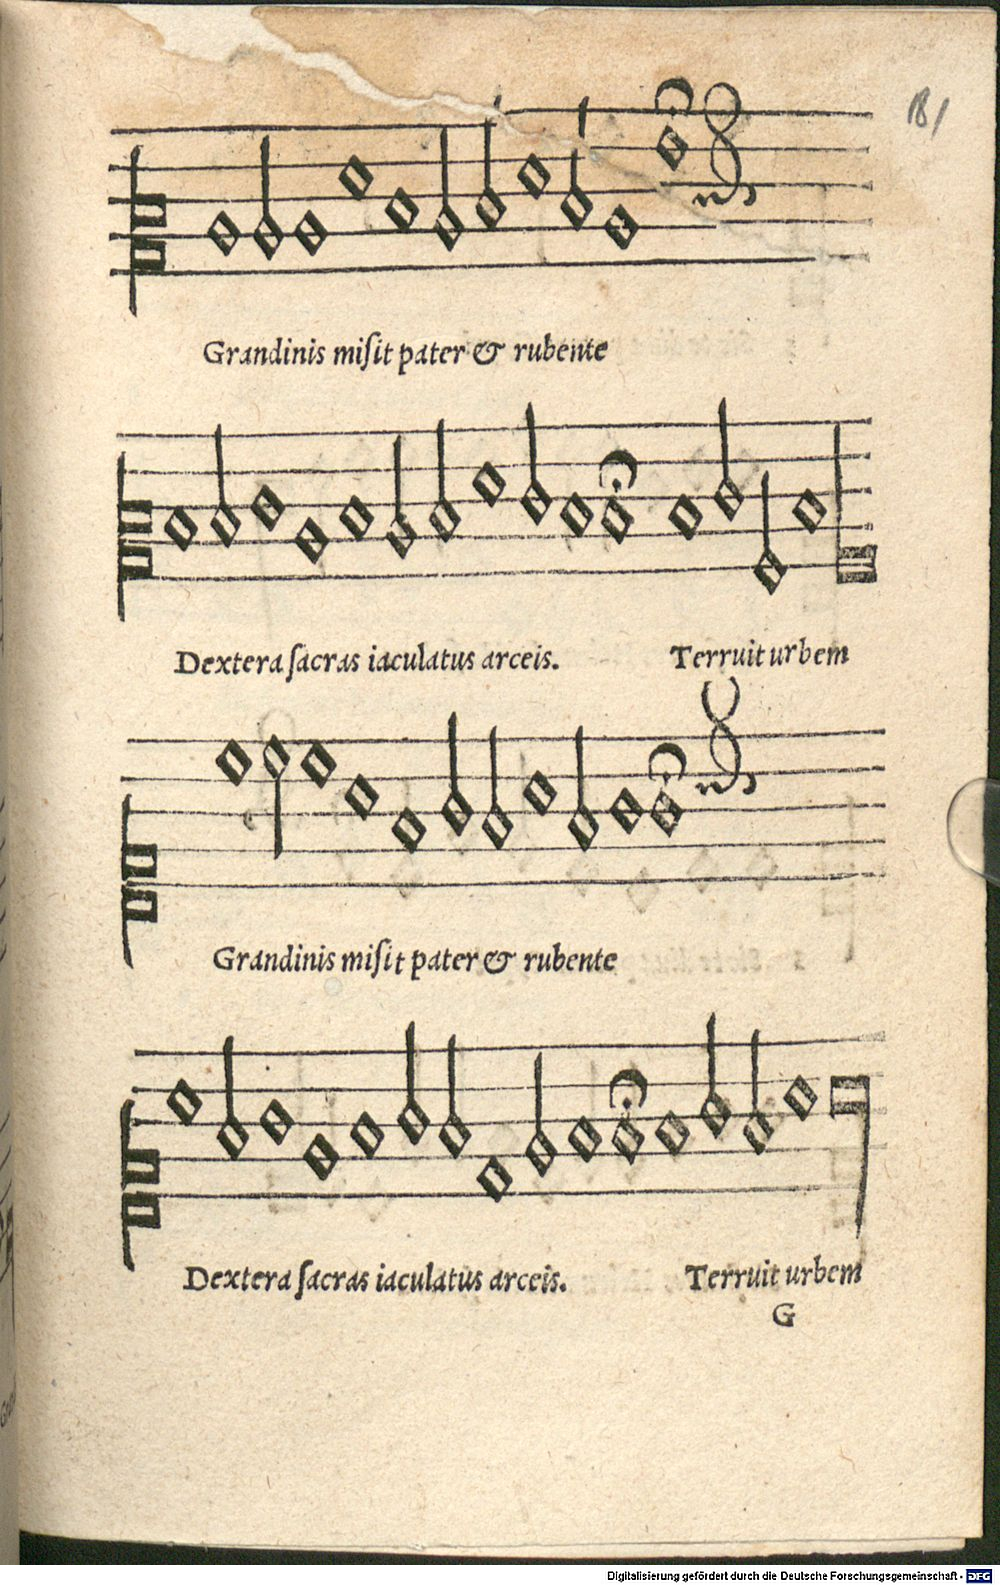 181
Grandinis miſit pater & rubente
Dextera ſacras iaculatus arceis. Terruit urbem
Grandinis miſit pater & rubente
Dextera ſacras iaculatus arceis. Terruit urbem
G
Digitalisierung gefördert durch die Deutsche Forschungsgemeinschaft - DFG